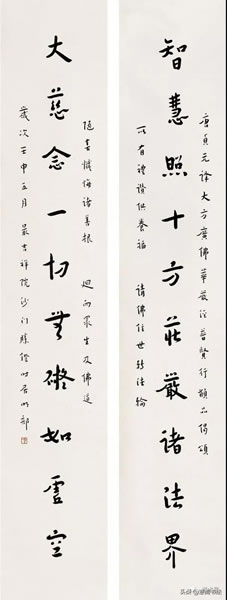 唐貞元譯大方廣佛華嚴經普賢行願品偈頌
智慧照十方莊嚴諸法界
所有禮讚供養福 請佛住世轉法輪
隨喜懺悔諸善根 迴向眾生及佛道
大慈念一切無礙如虛空
歲次壬申五月 吉祥院沙門勝 時居